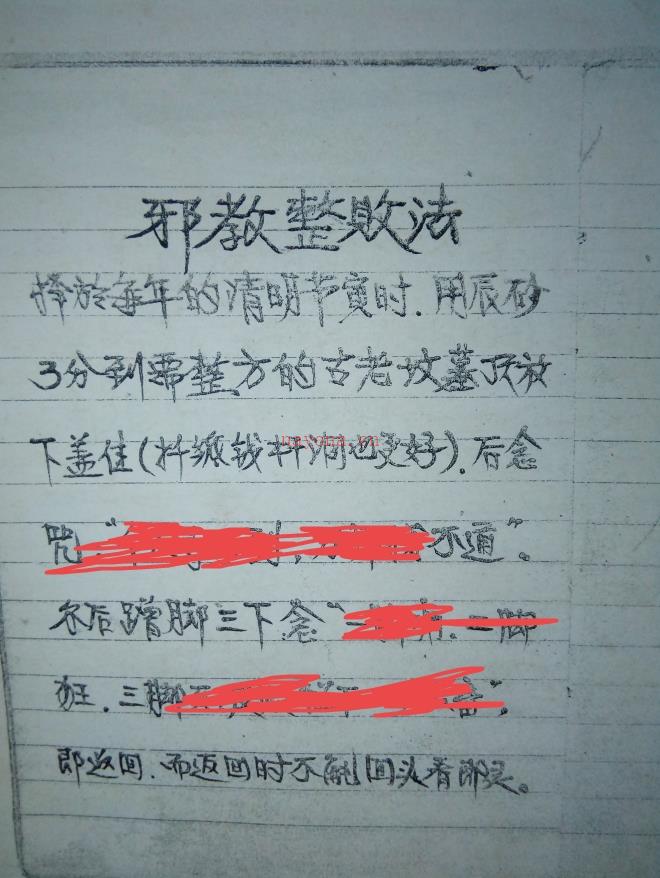 邪教整败法
择於每年的清明节寅时.用辰砂
3分到需整方的古老坟墓顶放
下盖住(井也更好).后念
咒“不通”.
尔后蹭脚三下念“一脚
狂.三脚
即返回.而返回时不能回头看即灵。
nayona.cn